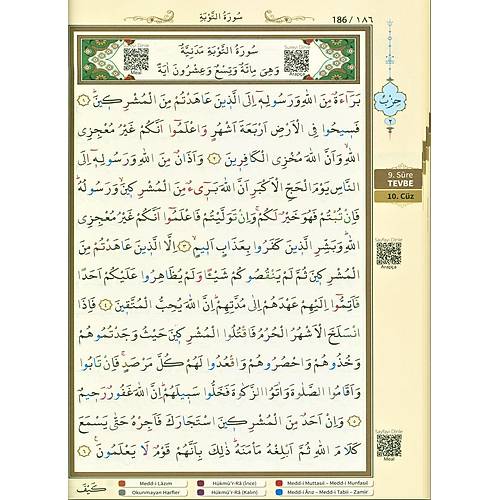 سُورَةُ التَّوْبَةِ
186 / ١٨٦
سُورَةُ التَّوْبَةِ مَدَنِيَّةٌ
وَهِيَ مِائَةٌ وَتِسْعٌ وَعِشْرُونَ اٰيَةً
Sureyi Dinle
Meal
Sureyi Dinle
Arapça
بَرَٓاءَةٌ مِنَ اللّٰهِ وَرَسُولِه۪ٓ اِلَى الَّذ۪ينَ عَاهَدْتُمْ مِنَ الْمُشْرِك۪ينَۜ ﴿١﴾
فَس۪يحُوا فِي الْاَرْضِ اَرْبَعَةَ اَشْهُرٍ وَاعْلَمُٓوا اَنَّكُمْ غَيْرُ مُعْجِزِي
اللّٰهِۙ وَاَنَّ اللّٰهَ مُخْزِي الْكَافِر۪ينَ ﴿٢﴾ وَاَذَانٌ مِنَ اللّٰهِ وَرَسُولِه۪ٓ اِلَى
النَّاسِ يَوْمَ الْحَجِّ الْاَكْبَرِ اَنَّ اللّٰهَ بَر۪ٓيءٌ مِنَ الْمُشْرِك۪ينَۙ وَرَسُولُهُۜ
فَاِنْ تُبْتُمْ فَهُوَ خَيْرٌ لَكُمْۚ وَاِنْ تَوَلَّيْتُمْ فَاعْلَمُٓوا اَنَّكُمْ غَيْرُ مُعْجِزِي
اللّٰهِۜ وَبَشِّرِ الَّذ۪ينَ كَفَرُوا بِعَذَابٍ اَل۪يمٍۙ ﴿٣﴾ اِلَّا الَّذ۪ينَ عَاهَدْتُمْ مِنَ
الْمُشْرِك۪ينَ ثُمَّ لَمْ يَنْقُصُوكُمْ شَيْـًٔا وَلَمْ يُظَاهِرُوا عَلَيْكُمْ اَحَدًا
فَاَتِمُّٓوا اِلَيْهِمْ عَهْدَهُمْ اِلٰى مُدَّتِهِمْۜ اِنَّ اللّٰهَ يُحِبُّ الْمُتَّق۪ينَ ﴿٤﴾ فَاِذَا
انْسَلَخَ الْاَشْهُرُ الْحُرُمُ فَاقْتُلُوا الْمُشْرِك۪ينَ حَيْثُ وَجَدْتُمُوهُمْ
وَخُذُوهُمْ وَاحْصُرُوهُمْ وَاقْعُدُوا لَهُمْ كُلَّ مَرْصَدٍۚ فَاِنْ تَابُوا
وَاَقَامُوا الصَّلٰوةَ وَاٰتَوُا الزَّكٰوةَ فَخَلُّوا سَب۪يلَهُمْۜ اِنَّ اللّٰهَ غَفُورٌ رَح۪يمٌ
﴿٥﴾ وَاِنْ اَحَدٌ مِنَ الْمُشْرِك۪ينَ اسْتَجَارَكَ فَاَجِرْهُ حَتّٰى يَسْمَعَ
كَلَامَ اللّٰهِ ثُمَّ اَبْلِغْهُ مَأْمَنَهُۜ ذٰلِكَ بِاَنَّهُمْ قَوْمٌ لَا يَعْلَمُونَ۟ ﴿٦﴾
كَيْفَ
حزب
٢
9. Sûre
TEVBE
10. Cüz
Sayfayı Dinle
Arapça
Sayfayı Dinle
Meal
Medd-i Lâzım
Hükmü'r-Râ (İnce)
Medd-i Muttasıl – Medd-i Munfasıl
Okunmayan Harfler
Hükmü'r-Râ (Kalın)
Medd-i Ârız – Medd-i Tabii – Zamir